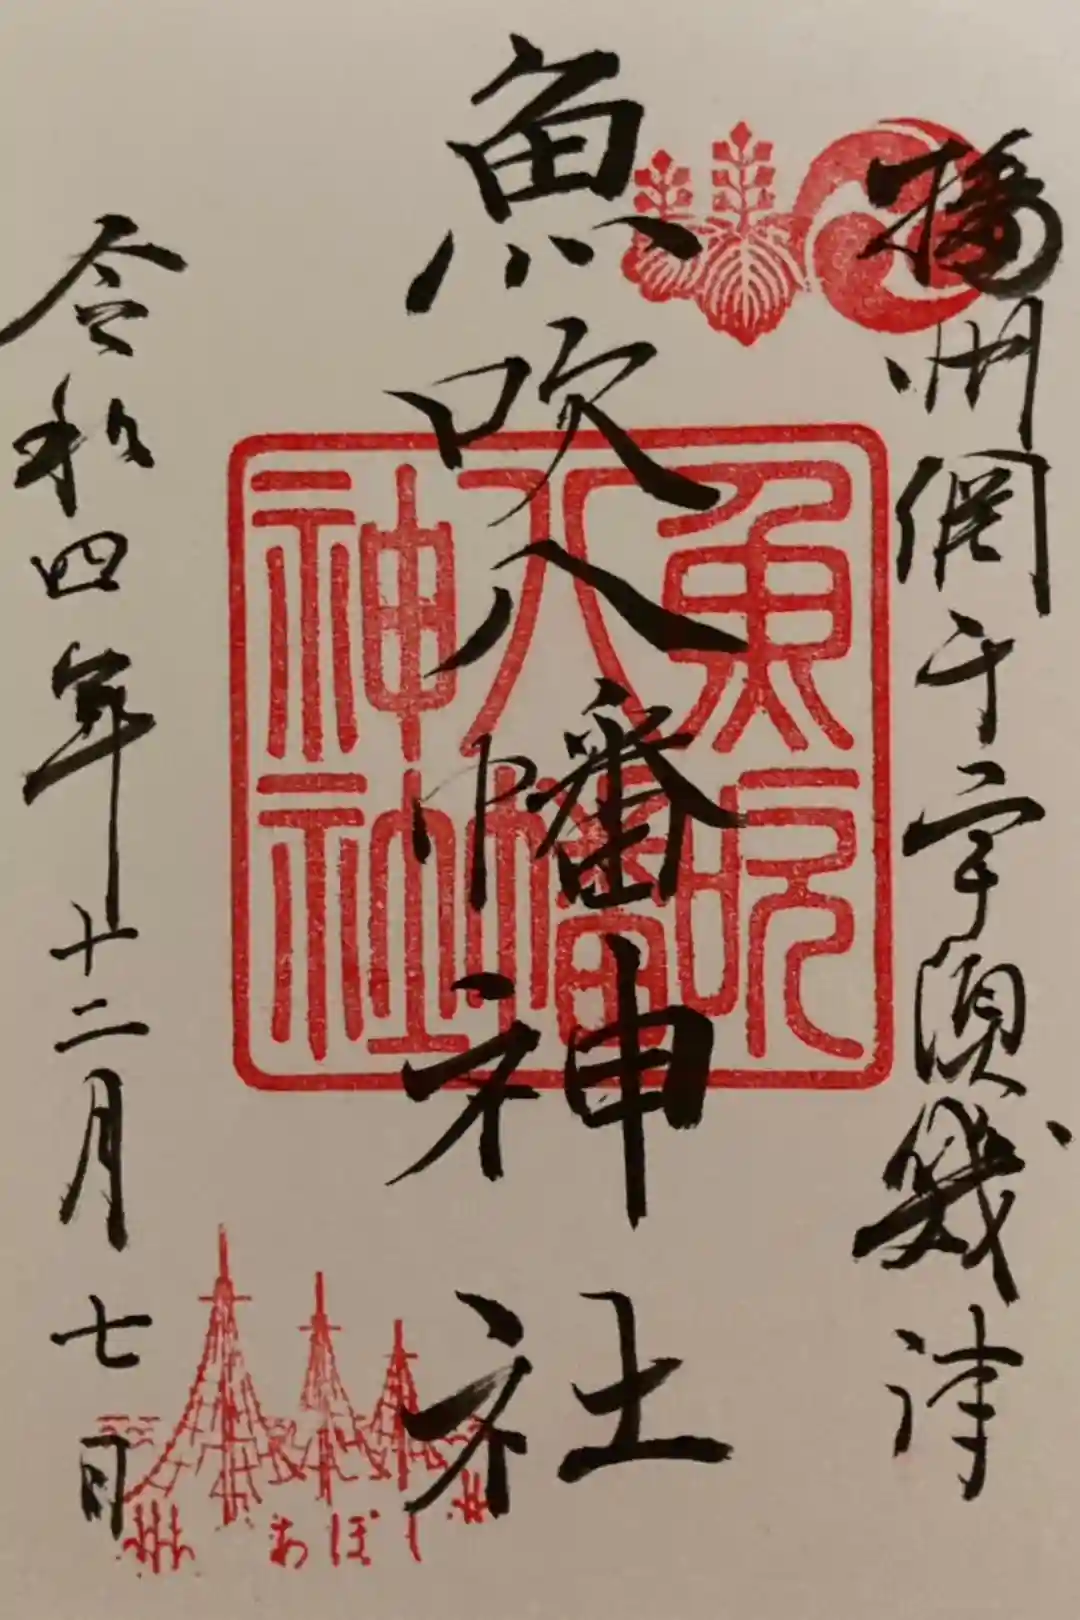 播州網干宇須幾津
魚吹八幡神社
魚吹
八幡
神社
令和四年十二月七日
あぼし